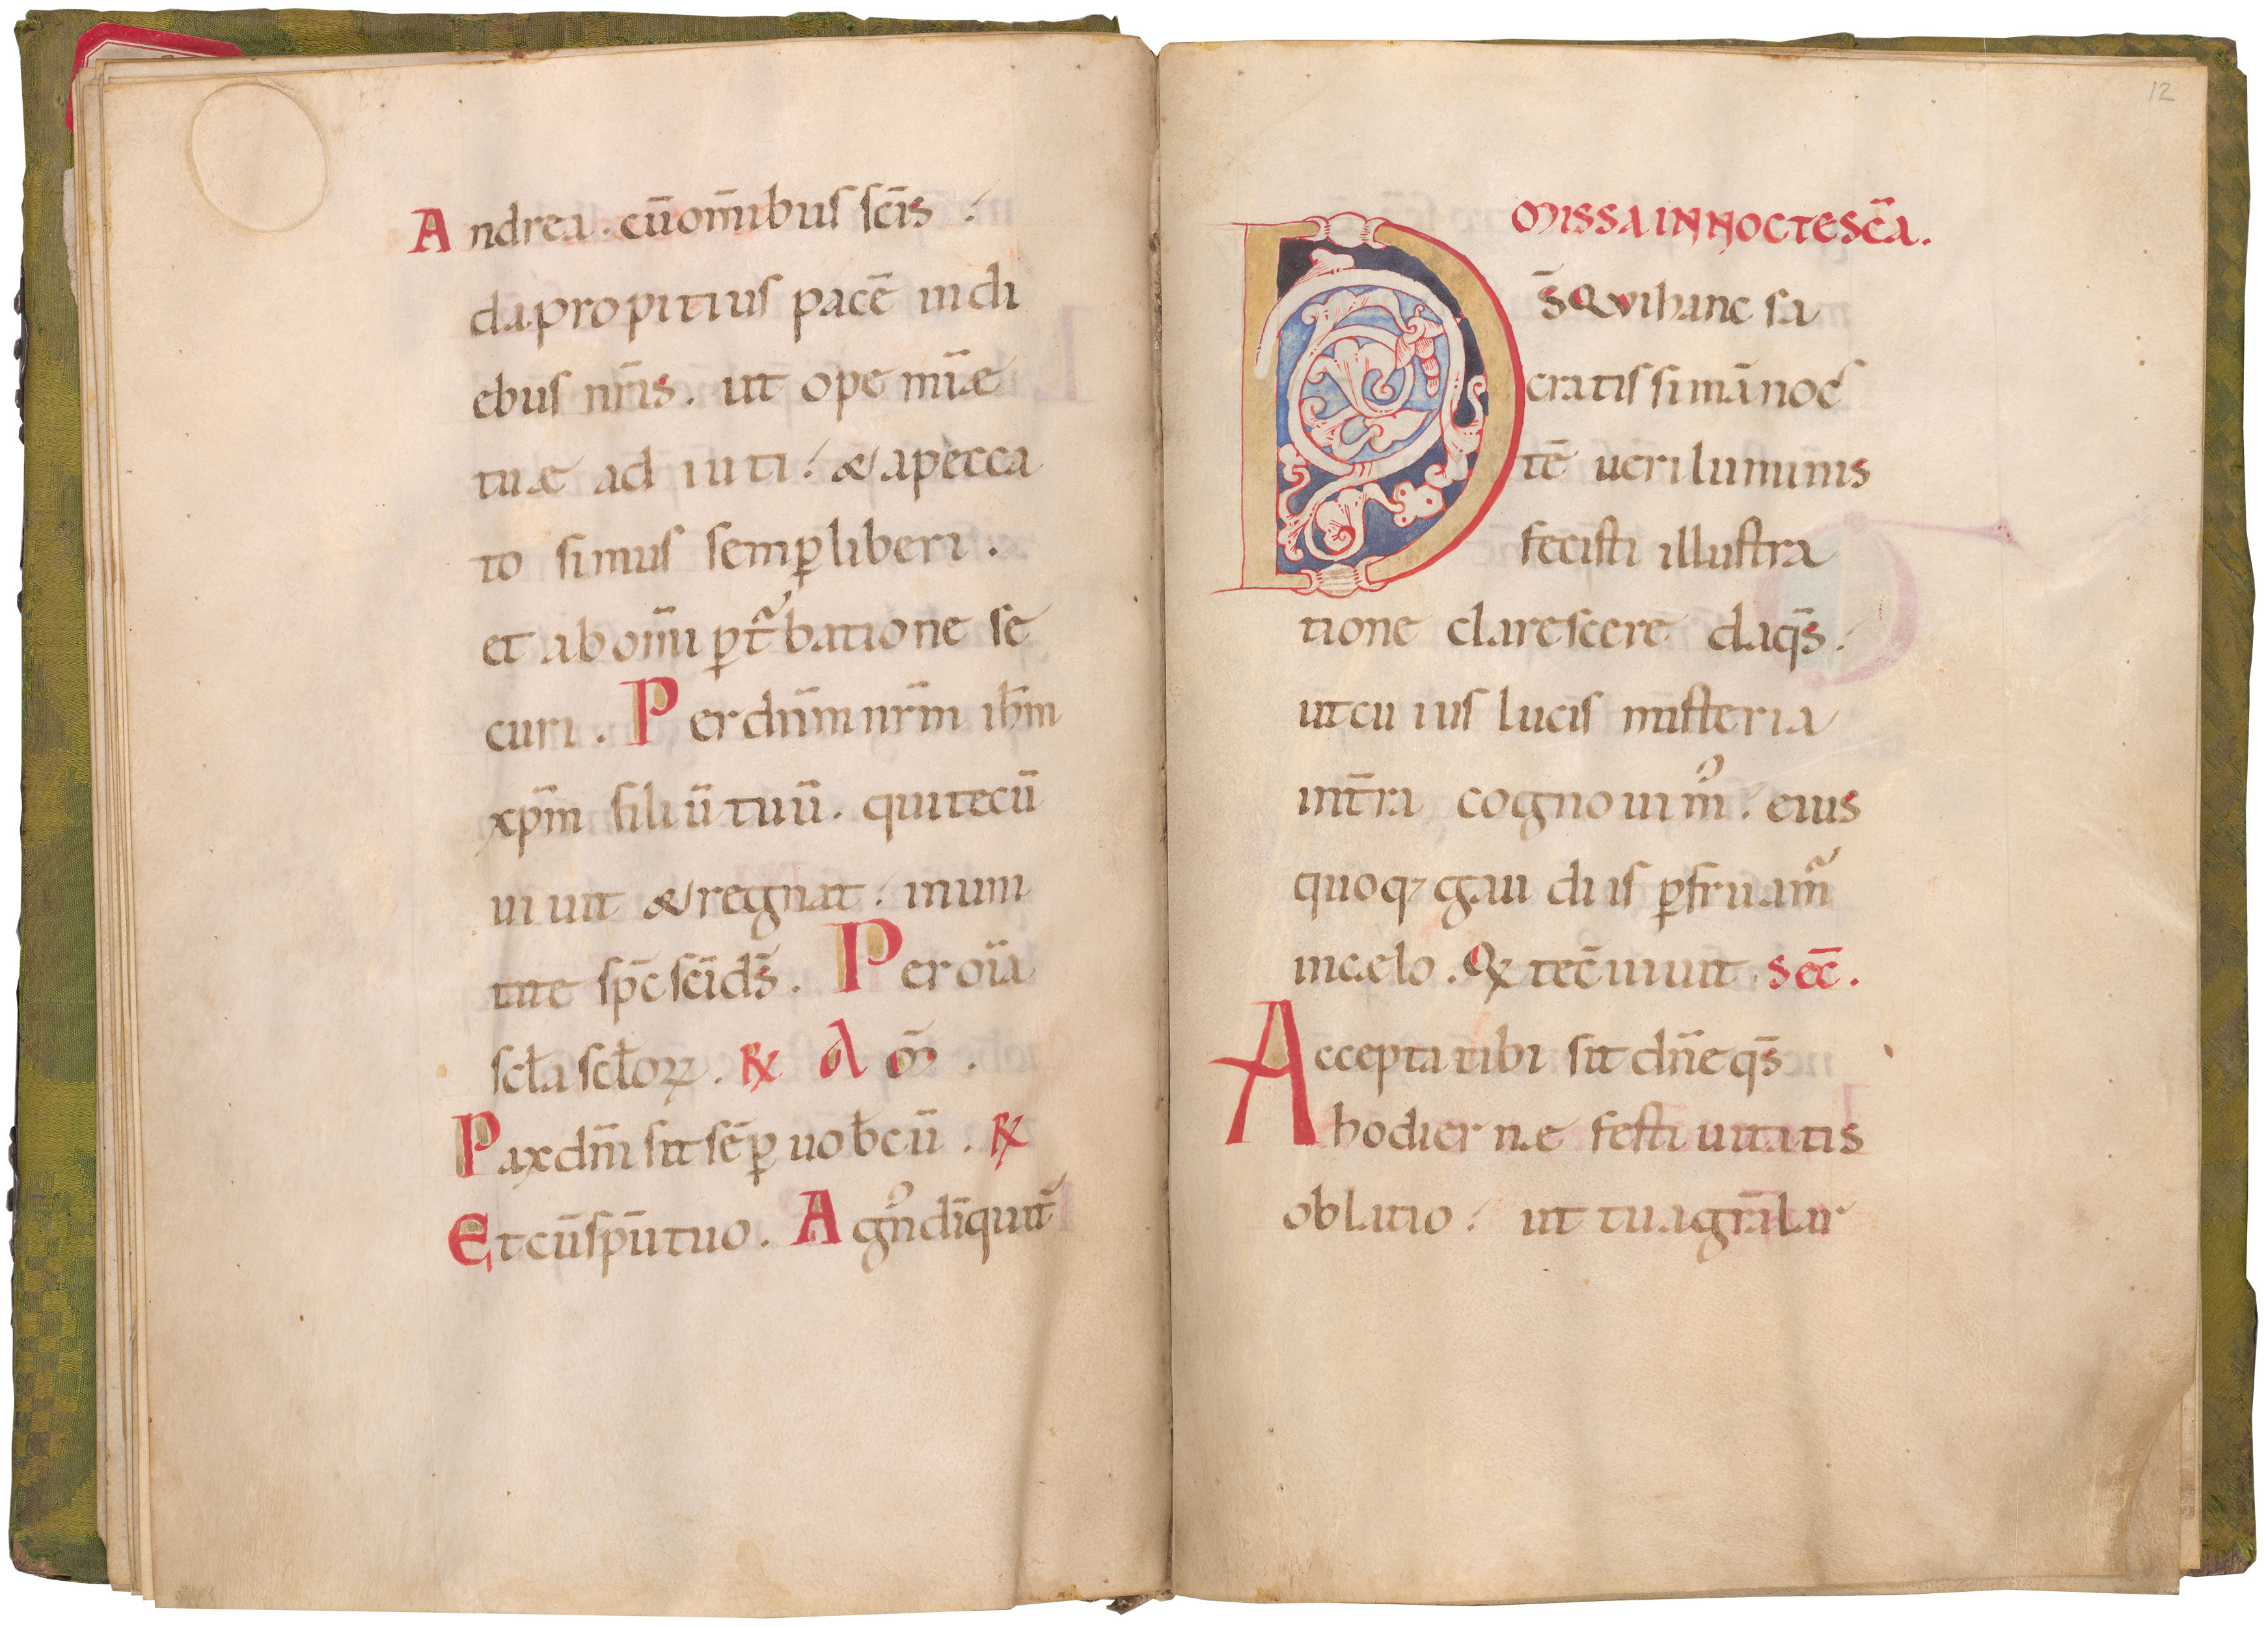 Andrea. cū om̄ibus sc̄is.
da propitius pacē in di
ebus nr̄is. ut ope mīae
tuae ad iuti. & apecca
to simus semꝑ liberi.
et ab om̄i ꝑt᷑batione se
curi. Per dn̄m nr̄m ih̄m
xp̄m filiū tuū. qui tecū
uiuit & regnat. in uni
tate sp̄c sc̄i ds̄. Per oīa
scl̄a scl̄oꝝ. ℟ am̄.
Pax dn̄i sit sēꝑ uob̄cū. ℟
Et cū sp̄u tuo. Agn᷒ dī qui t̄
12
MISSA IN NOCTE SC̄A.
Ds̄ Qui hanc sa
cratissimā noc
tē ueri luminis
fecisti illustra
tione clarescere da qs̄.
ut cuius lucis mīsteria
in t̄ra cognouim᷒. eius
quoq; gaudiis ꝑfruam᷑
in caelo. Qꝝ tec̄ uiuit. Sec̄.
Accepta tibi sit dn̄e qs̄
hodiernae festiuitatis
oblatio. ut tua gr̄a lar